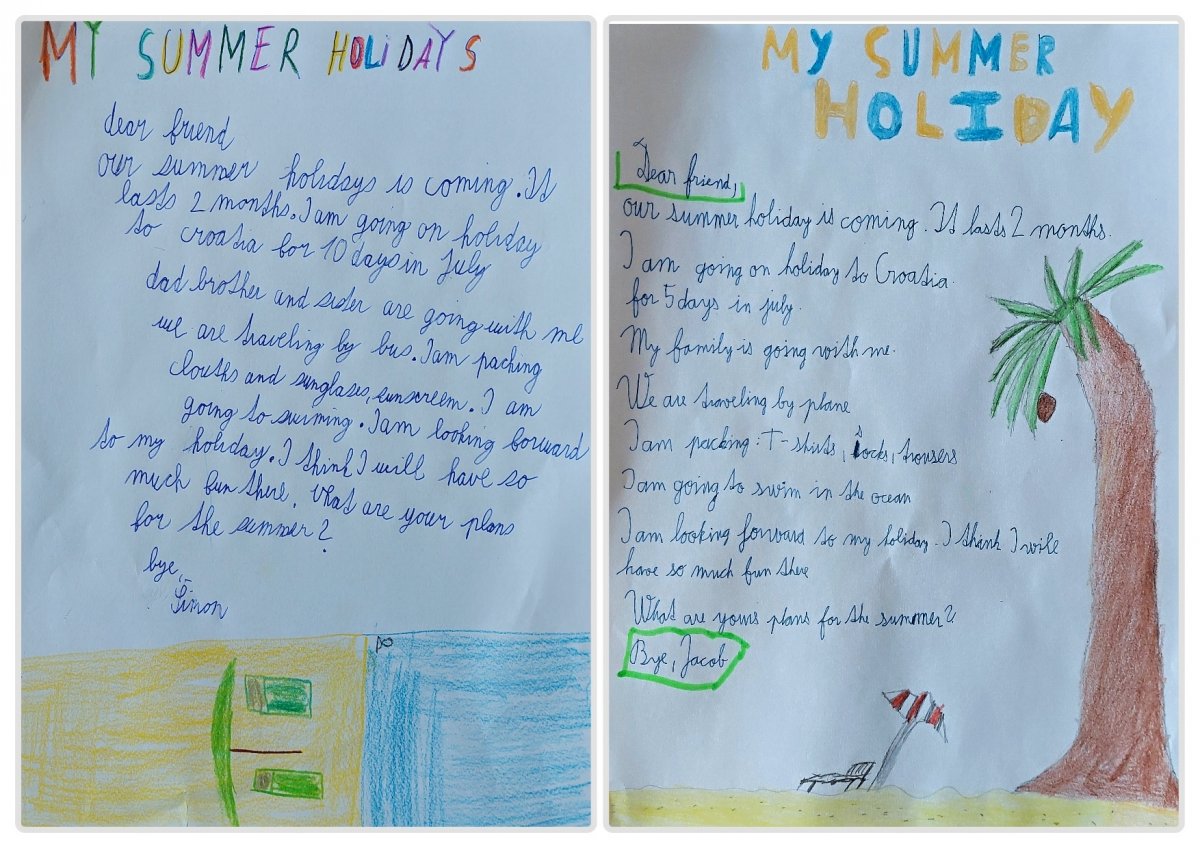 MY SUMMER HOLIDAYS
dear friend
our summer holidays is coming. It
lasts 2 months. I am going on holiday
to croatia for 10 days in July
dad brother and sister are going with me
we are traveling by bus. I am packing
clouths and sunglases, sunscreem. I am
going to swiming. I am looking forward
to my holiday. I think I will have so
much fun there. What are your plans
for the summer?
bye,
Šimon
MY SUMMER
HOLIDAY
Dear friend,
our summer holiday is coming. It lasts 2 months.
I am going on holiday to Croatia.
for 5 days in july.
My family is going with me.
We are traveling by plane
I am packing: T-shirts, socks, trousers
I am going to swim in the ocean
I am looking forward to my holiday. I think I will
have so much fun there
What are yours plans for the summer?
Bye, Jacob